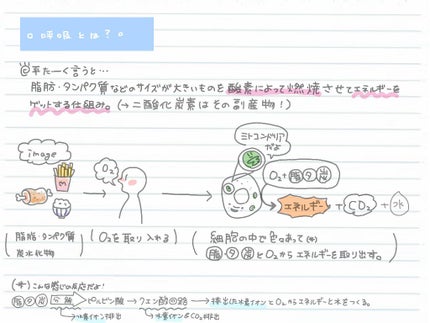 ○呼吸とは?○
㋪平たーく言うと…
脂肪・タンパク質などのサイズが大きいものを酸素によって燃焼させてエネルギーを
ゲットする仕組み。(→二酸化炭素はその副産物!)
image
O₂
ミトコンドリア
だよ
O₂+脂タ炭
エネルギー +CO₂+水
(脂肪・タンパク質
炭水化物)
(O₂を取り入れる)
(細胞の中で色々あって(*)
脂タ炭とO₂からエネルギーを取り出す。)
(*)こんな感じの反応だよ!
脂タ炭 分解 →ピルビン酸→クエン酸回路→排出した水素イオンとO₂からエネルギーと水をつくる。
→水素イオン排出
→水素イオン&CO₂排出